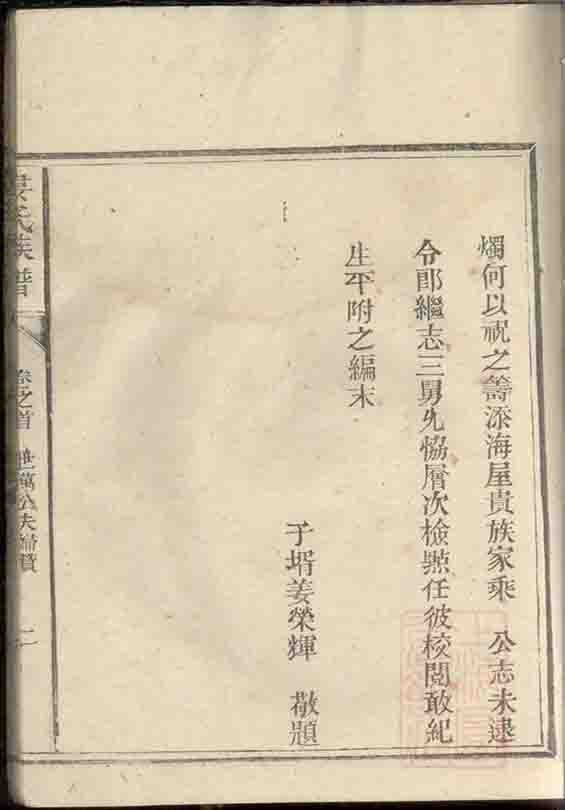 燭何以祝之籌添海屋貴族家乘　公志未逮
令郎繼志三男允恊層次檢點任彼校閱敢紀
生平附之編末
子壻姜榮輝　敬題
氏族譜
卷之首　世萬公夫婦贊　二